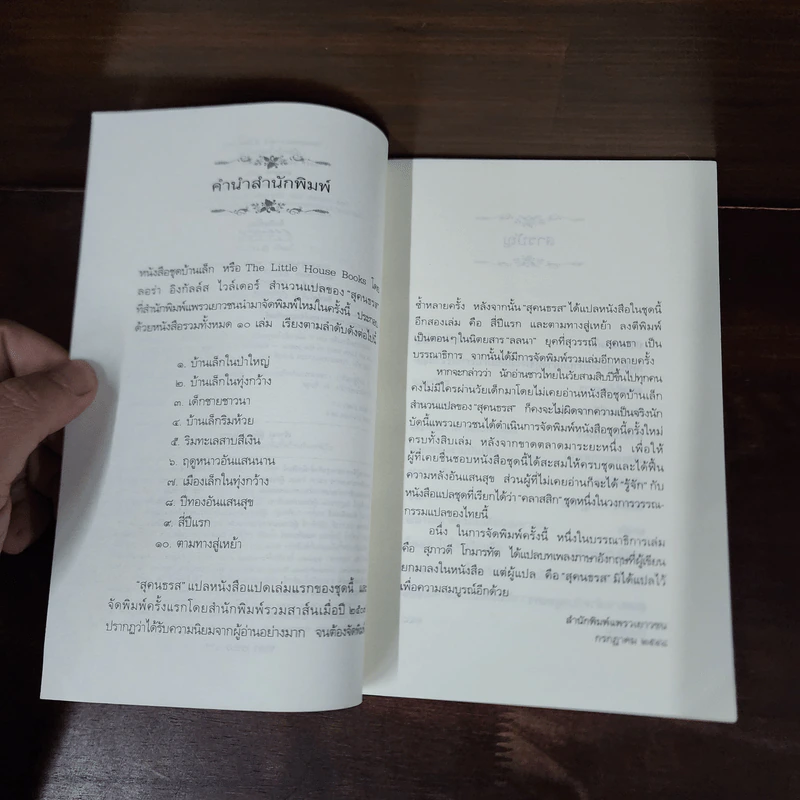 คำนำสำนักพิมพ์
หนังสือชุดบ้านเล็ก หรือ The Little House Books โดย
ลอร่า อิงกัลล์ส ไวล์เดอร์ สำนวนแปลของ “สุคนธรส”
ที่สำนักพิมพ์แพรวเยาวชนนำมาจัดพิมพ์ใหม่ในครั้งนี้ ประกอบ
ด้วยหนังสือรวมทั้งหมด ๑๐ เล่ม เรียงตามลำดับดังต่อไปนี้
๑. บ้านเล็กในป่าใหญ่
๒. บ้านเล็กในทุ่งกว้าง
๓. เด็กชายชาวนา
๔. บ้านเล็กริมห้วย
๕. ริมทะเลสาบสีเงิน
๖. ฤดูหนาวอันแสนนาน
๗. เมืองเล็กในทุ่งกว้าง
๘. ปีทองอันแสนสุข
๙. สี่ปีแรก
๑๐. ตามทางสู่เหย้า
“สุคนธรส” แปลหนังสือแปดเล่มแรกของชุดนี้
จัดพิมพ์ครั้งแรกโดยสำนักพิมพ์รวมสาส์นเมื่อปี
ปรากฏว่าได้รับความนิยมจากผู้อ่านอย่างมาก จนต้องจัดพิมพ์
ซ้ำหลายครั้ง หลังจากนั้น “สุคนธรส” ได้แปลหนังสือในชุดนี้
อีกสองเล่ม คือ สี่ปีแรก และตามทางสู่เหย้า ลงตีพิมพ์
เป็นตอนๆ ในนิตยสาร “ลลนา” ยุคที่สุวรรณี สุคนธา เป็น
บรรณาธิการ จากนั้นได้มีการจัดพิมพ์รวมเล่มอีกหลายครั้ง
หากจะกล่าวว่า นักอ่านชาวไทยในวัยสามสิบปีขึ้นไปทุกคน
คงไม่มีใครผ่านวัยเด็กมาโดยไม่เคยอ่านหนังสือชุดบ้านเล็ก
สำนวนแปลของ “สุคนธรส” ก็คงจะไม่ผิดจากความเป็นจริงนัก
บัดนี้แพรวเยาวชนได้ดำเนินการจัดพิมพ์หนังสือชุดนี้ครั้งใหม่
ครบทั้งสิบเล่ม หลังจากขาดตลาดมาระยะหนึ่ง เพื่อให้
ผู้ที่เคยชื่นชอบหนังสือชุดนี้ได้สะสมให้ครบชุดและได้ฟื้น
ความหลังอันแสนสุข ส่วนผู้ที่ไม่เคยอ่านก็จะได้ “รู้จัก” กับ
หนังสือแปลชุดที่เรียกได้ว่า “คลาสสิก” ชุดหนึ่งในวงการวรรณ-
กรรมแปลของไทยนี้
อนึ่ง ในการจัดพิมพ์ครั้งนี้ หนึ่งในบรรณาธิการเล่ม
คือ สุภาวดี โกมารทัต ได้แปลบทเพลงภาษาอังกฤษที่ผู้เขียน
ยกมาลงในหนังสือ แต่ผู้แปล คือ “สุคนธรส” มิได้แปลไว้
เพื่อความสมบูรณ์อีกด้วย
สำนักพิมพ์แพรวเยาวชน
กรกฎาคม